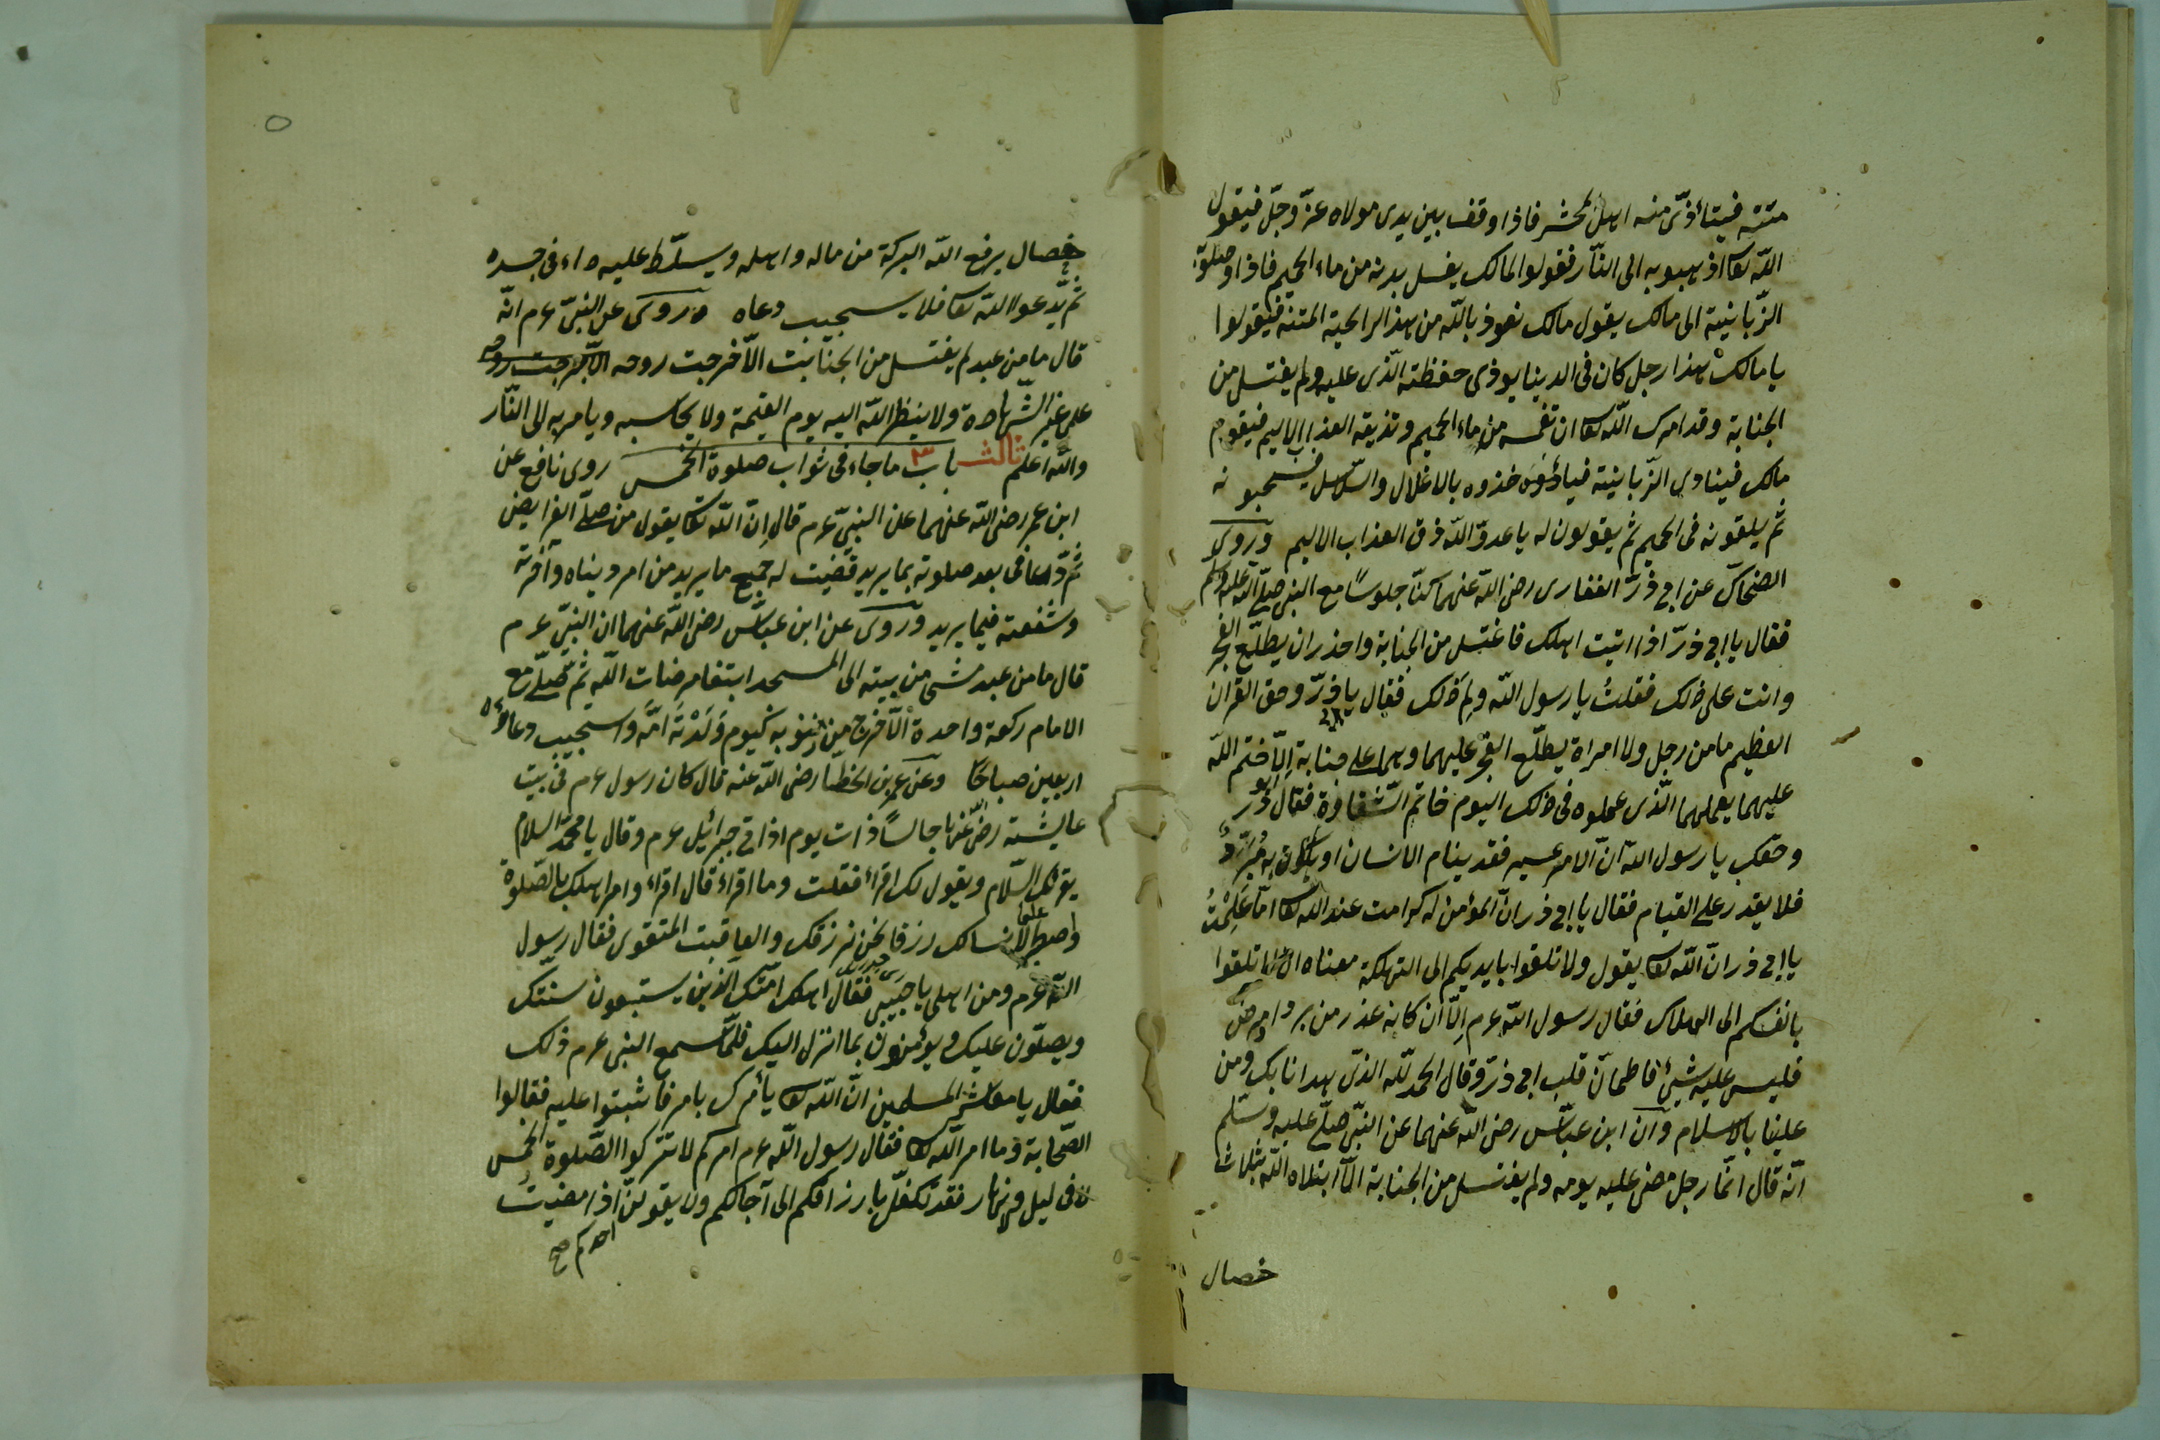 متنة فيتاءذّى منه اهل المحشر فاذا وقف بين يدى مولاه عزّ وجلّ فيقول
اللّه تعا اذهبوبه الى النّار فقولوا لمالك يغسل بدنه من ماء الحميم فاذا وصلوا
الزّبانية الى مالك يقول مالك نعوذ باللّه من هذا الرايحة المتنة فيقولوا
يا مالك هذا رجل كان فى الدينا يوذى حفظته الّذى عليه ولم يغتسل من
الجنابة وقد امرك اللّه تعا ان تغمسه من ماء الحميم وتذيقه العذاب الاليم فيقوم
مالك فينادى الزّبانية خذوه بالاغلال والسّلاسل فيسحبو نه
ثم يلقونه فى الحميم ثم يقولون له يا عدوّ اللّه ذق العذاب الاليم وروى
الضحاك عن ابى ذرّ الغفارى رضى اللّه عنهما كنّا جلوسًا مع النبى صلّى اللّه عليه وسلم
فقال يا ابى ذرّ اذا اتيت اهلك فاغتسل من الجنابة واحذر ان يطلّع الفجر
وانت على ذلك فقلتُ يا رسول اللّه ولِمَ ذلك فقال يا ذرّ وحق القران
العظيم ما من رجل ولا امراة يطلّع الفجر عليهما وهما على جنابة اِلّا ختم اللّه
عليهما بعملهما الّذى عملوه فى ذلك اليوم خاتم الشّقاوة فقال ابو ذر
وحقك يا رسول اللّه انّ الامر عسير فقد ينام الانسان او يكون به
فلا يقدر على القيام فقال يا ابى ذر انّ المؤمن له كرامت عند اللّه تعا امّا عَلِمْتُ
يا ابى ذر انّ اللّه تعا يقول ولا تلقوا بايديكم الى التهلكة معناه لا تلقوا
بانفسكم الى الهلاك فقال رسول اللّه عم اِلّا ان كانه عذر من برد او مرض
فليس عليه شيئ فاطمانّ قلب ابى ذرّ وقال الحمد للّه الذى هدانا بك ومن
علينا بالاسلام وان ابن عبّاس رضى اللّه عنهما عن النبّى صلّى عليه وسلّم
انّه قال انّما رجل مضى عليه يومه ولم يغتسل من الجنابة الّا ابتلاه اللّه بثلاث
خصال
خصال يرفع اللّه البركة من ماله واهله ويسلّط عليه داء فى جسده
ثم يدعو اللّه تعا فلا يستجيب دعاه وروى عن النبىّ عم انّه
قال ما من عبد لم يغتسل من الجنابت الّا خرجت روحه
على غير الشّهادة ولا ينظر اللّه اليه يوم القيمة ولا يحاسبه ويامر به الى النّار
واللّه اعلم ثالث باب ٣ ما جاء فى ثواب صلوة الخمس روى نافع عن
ابن عمر رضى اللّه عنهما عن النبىّ عم قال اِنّ اللّه تعا يقول من صلّى الفرايض
ثم دعا فى بعد صلوته بما يريد قضيت له جميع ما يريد من امر ديناه وآخرته
وشفعته فيما يريد وروى عن ابن عبّاس رضى اللّه عنهما ان النبىّ عم
قال ما من عبد مشى من بيته الى المسجد ابتغا مرضات اللّه ثم يصلّى مع
الامام ركعة واحدة الّا خرج من ذنوبه كيوم وَلَدَتْهُ امّه واستجيب دعاؤه
اربعين صباحًا وعن عمر بن الخطّاب رضى اللّه عنه قال كان رسول عم فى بيت
عايشة رضى اللّه عنها جالسًا ذات يوم اذ اتى جبرائيل عم وقال يا محمّد السلام
يقرئك السّلام ويقول لك اقراء فقلت وما اقراء قال اقراء وامر اهلك بالصّلوة
واصطبر عليها لا نسالك رزقا نحن نرزقك والعاقبت المتقوى فقال رسول
اللّه عم ومن اهلى يا حبيبى جبريل فقال اهلك امّتك الّذين يستبعون سنّتك
ويصلّون عليك ويوئمنون بما انزل اليك فلمّا سمع النبى عم ذلك
فقال يا معاشر المسلمين انّ اللّه تعا يأمرك بامر فاثبتوا عليه فقالوا
الصّحابة وما امر اللّه تعا فقال رسول اللّه عم امركم لا تتركوا الصّلوة الخمس
فى ليل ونهار فقد تكفّل بارزاقكم الى آجالكم ولا يقولنّ اذا مضيت
احدكم صح